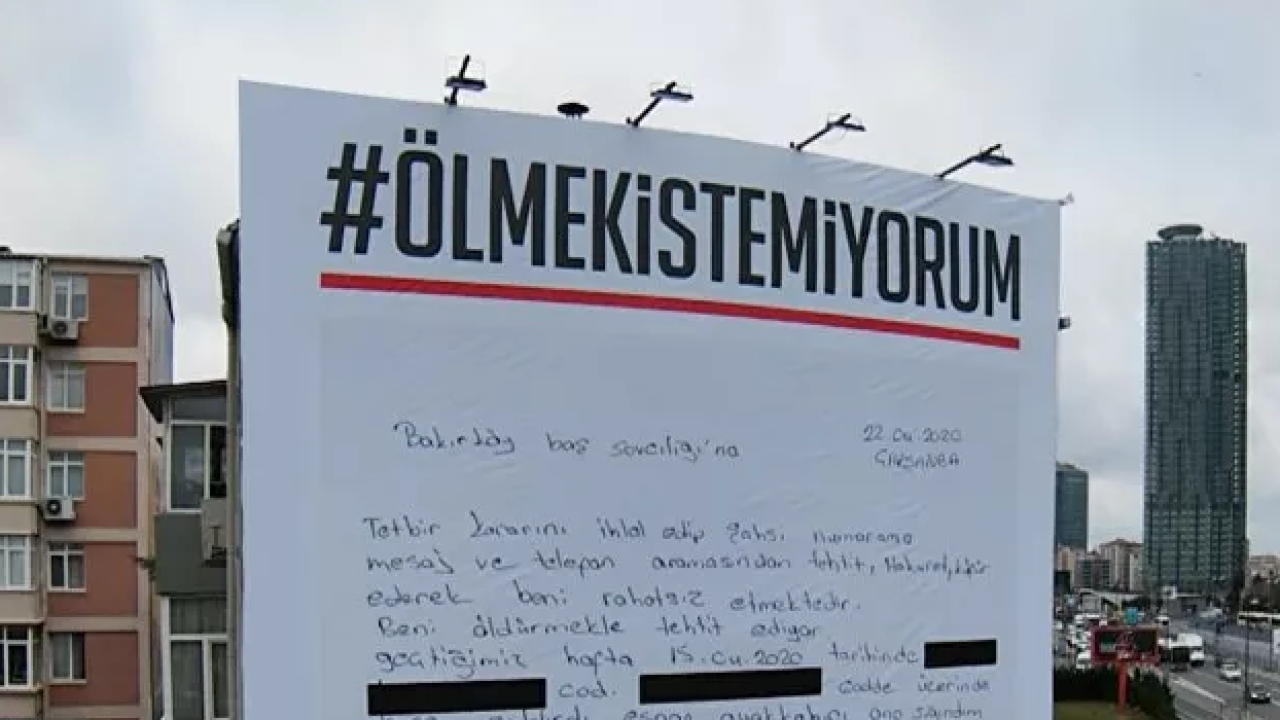 #ÖLMEKiSTEMiYORUM
Bakırköy baş savcılığı'na
22.04.2020
ÇARŞANBA
Tetbir kararını ihlal edip şahsi numarama
mesaj ve telefan aramasından tehtit, Hakaret,
ederek beni rahatsız etmektedir.
Beni öldürmekle tehtit ediyor
geçtiğimiz hafta 15.04.2020 tarihinde
cad. cadde üzerinde